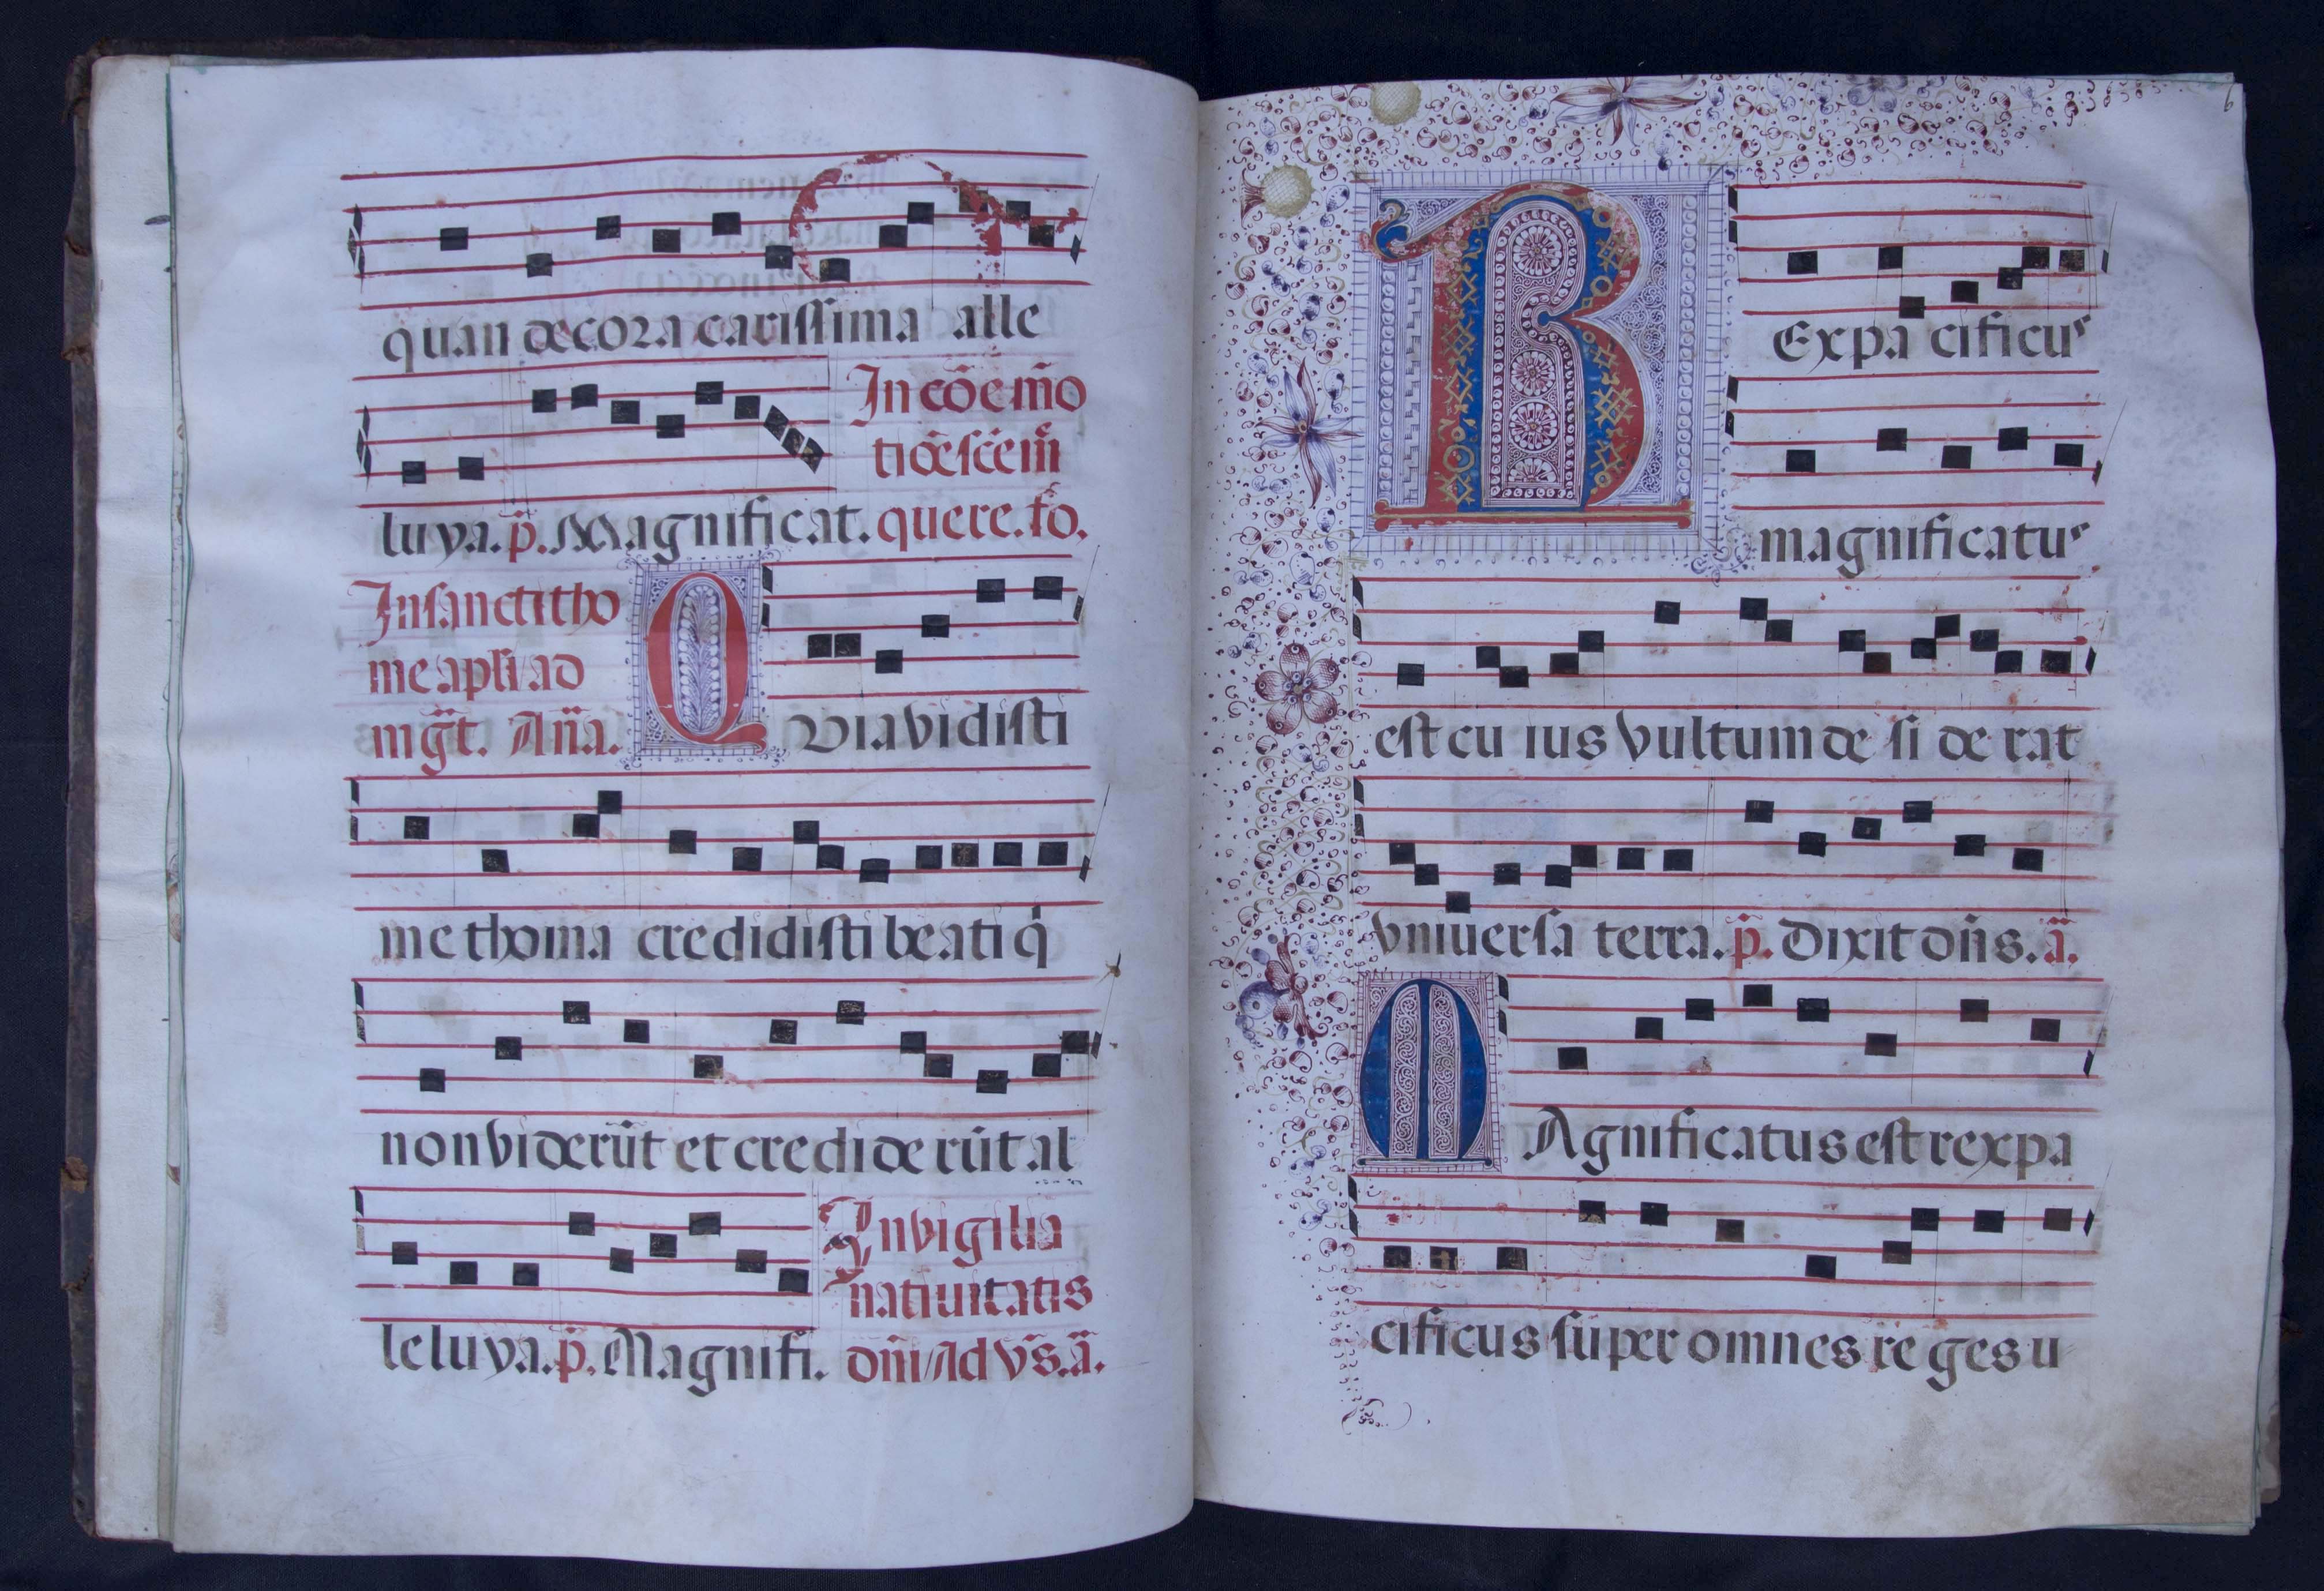 quan decora carissima alle
In cõe m̃o
tiõe scẽ m̃
luya. p̃. Magnificat. quere. fo.
In sancti tho
me apłi ad
mg̃t. Añа.
QVia vidisti
me thoma credidisti beati q̇
non viderũt et crediderũt al
In vigilia
nativitatis
leluya. p̃. Magnifi. dñi Ad vs̃. ã.
6
REx pacificus
magnificatus
est cuius vultum desiderat
vniuersa terra. p̃. Dixit dñs. ã.
MAgnificatus est rex pa
cificus super omnes reges u